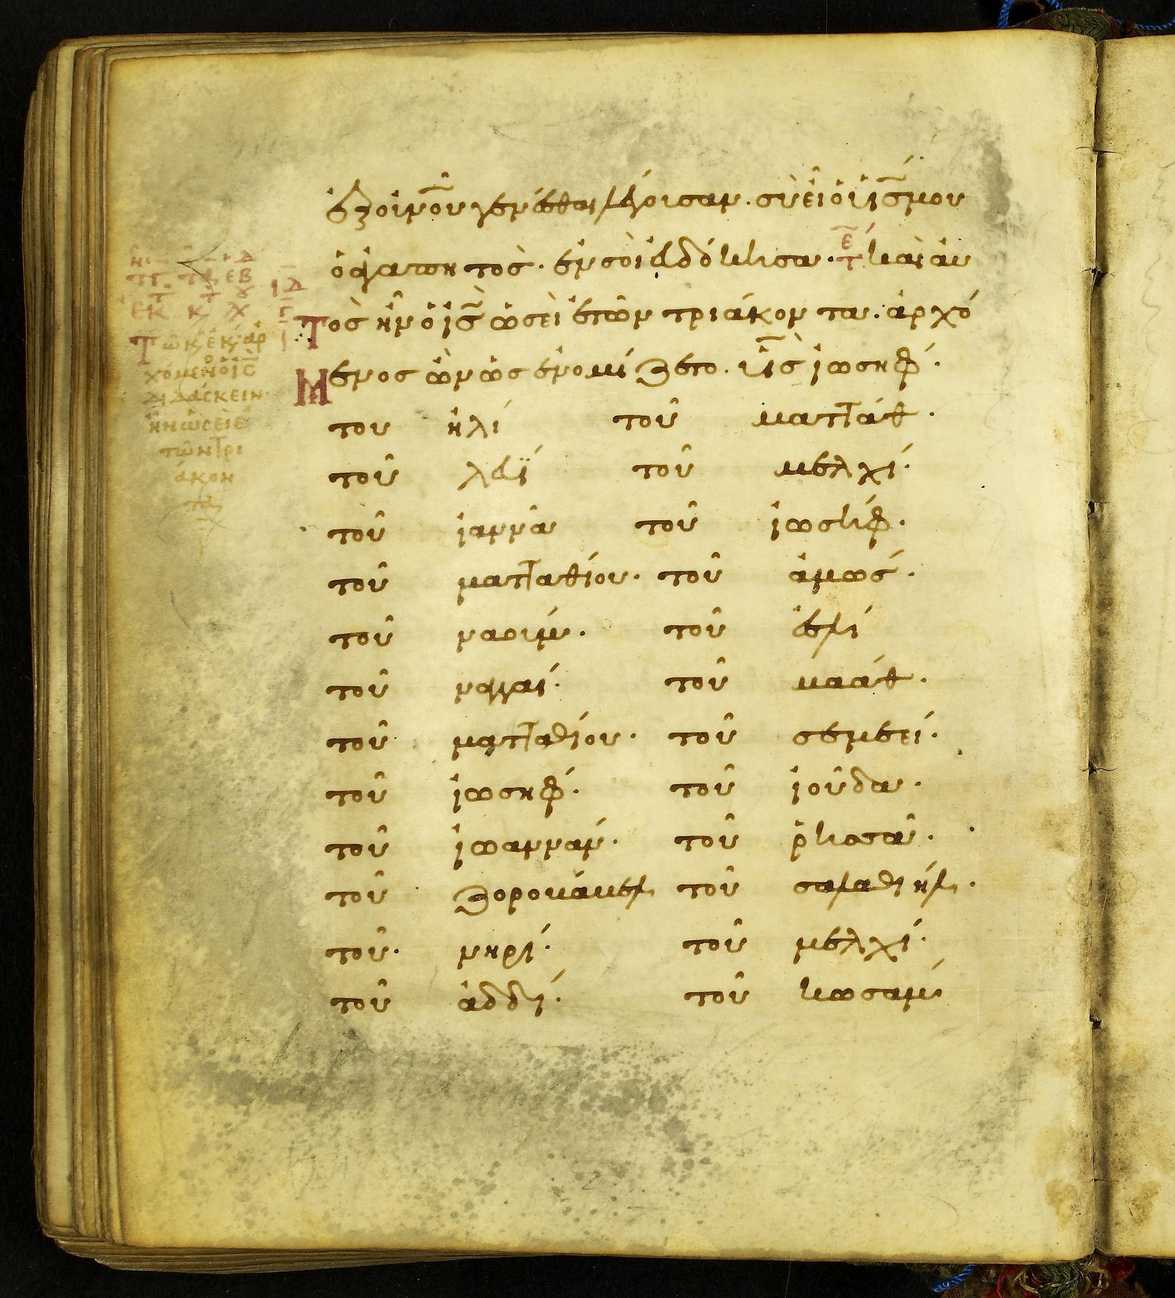 ἐξ οὐνοῦ γενέσθαι λέγουσαν· σὺ εἶ ὁ υἱός μου
ὁ ἀγαπητός· ἐν σοὶ εὐδόκησα· καὶ αὐ
τὸς ἦν ὁ ις ὡσεὶ ἐτῶν τριάκοντα· ἀρχό
μενος ὢν ὡς ἐνομίζετο· υς ἰωσήφ·
του ἡλί τοῦ ματτάθ·
τοῦ λευΐ τοῦ μελχί·
τοῦ ἰαννᾶ τοῦ ἰωσήφ·
τοῦ ματταθίου· τοῦ ἀμώς·
τοῦ ναούμ· τοῦ ἐσλί
τοῦ ναγγαί· τοῦ μαάθ·
τοῦ ματταθίου· τοῦ σεμεεί·
τοῦ ἰωσήφ· τοῦ ἰούδα·
τοῦ ἰωαννάν· τοῦ ῥησᾶ·
τοῦ ζοροβάβελ τοῦ σαλαθιήλ·
τοῦ· νηρί· τοῦ μελχί·
τοῦ ἀδδί· τοῦ κωσάμ
Τῶ κ, ἐκ, ἀρ
χόμενο ὁ ις
διδάσκειν
ἦν ὡσεὶ ἐ
τῶν τρι
άκον